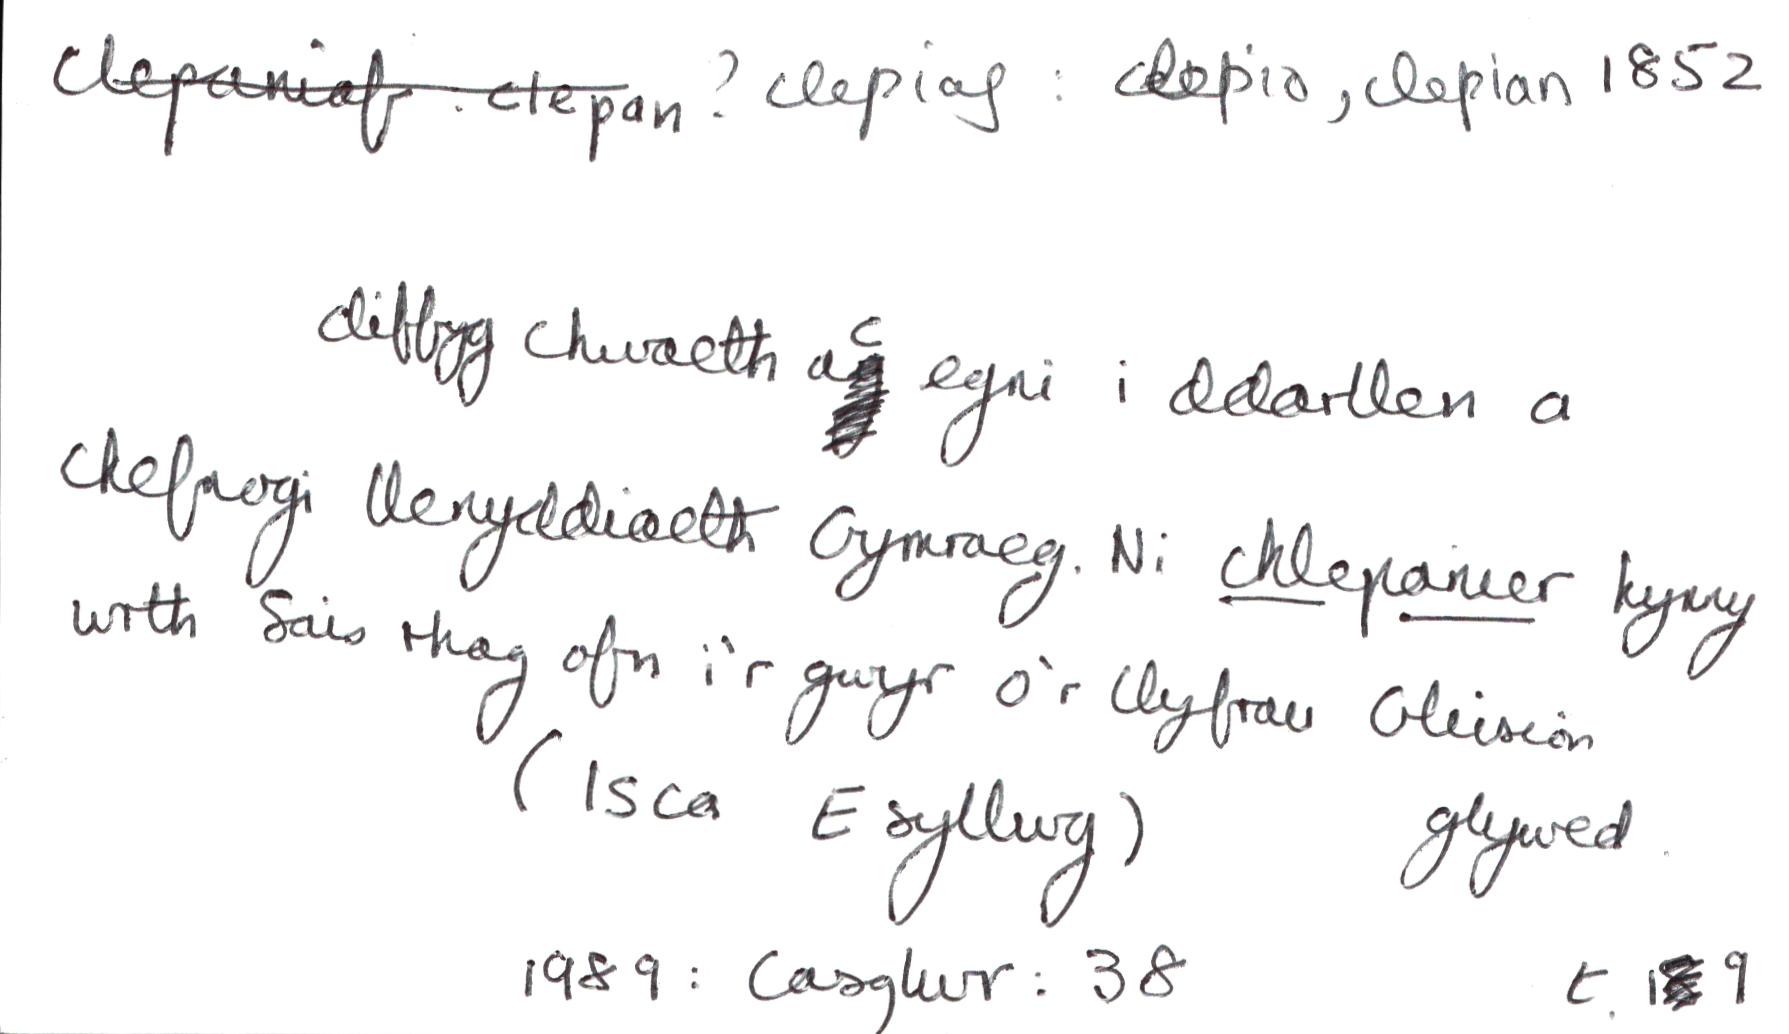 clepaniaf : clepan? clepiaf : clepio, clepian 1852
diffyg chwaeth ac egni i ddarllen a
chefnogi llenyddiaeth Gymraeg. Ni chlepanier hynny
wrth Sais rhag ofn i'r gwyr o'r Llyfrau Gleision
(Isca Esyllwg) glywed.
1989: Casglwr: 38 t. 19